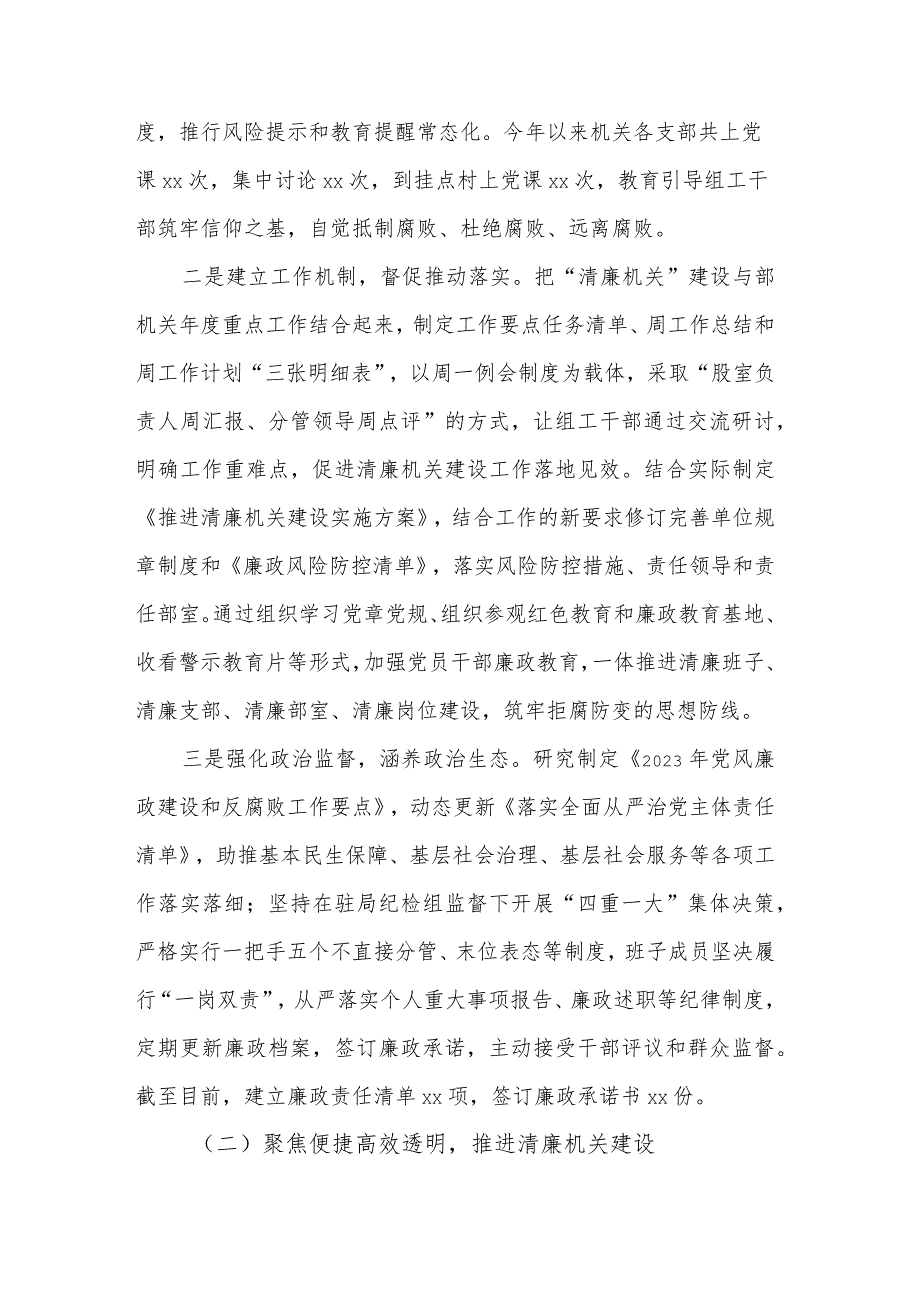 度，推行风险提示和教育提醒常态化。今年以来机关各支部共上党
课 xx 次，集中讨论 xx 次，到挂点村上党课 xx 次，教育引导组工干
部筑牢信仰之基，自觉抵制腐败、杜绝腐败、远离腐败。
二是建立工作机制，督促推动落实。把“清廉机关”建设与部
机关年度重点工作结合起来，制定工作要点任务清单、周工作总结和
周工作计划“三张明细表”，以周一例会制度为载体，采取“股室负
责人周汇报、分管领导周点评”的方式，让组工干部通过交流研讨，
明确工作重难点，促进清廉机关建设工作落地见效。结合实际制定
《推进清廉机关建设实施方案》，结合工作的新要求修订完善单位规
章制度和《廉政风险防控清单》，落实风险防控措施、责任领导和责
任部室。通过组织学习党章党规、组织参观红色教育和廉政教育基地、
收看警示教育片等形式，加强党员干部廉政教育，一体推进清廉班子、
清廉支部、清廉部室、清廉岗位建设，筑牢拒腐防变的思想防线。
三是强化政治监督，涵养政治生态。研究制定《2023 年党风廉
政建设和反腐败工作要点》，动态更新《落实全面从严治党主体责任
清单》，助推基本民生保障、基层社会治理、基层社会服务等各项工
作落实落细；坚持在驻局纪检组监督下开展“四重一大”集体决策，
严格实行一把手五个不直接分管、末位表态等制度，班子成员坚决履
行“一岗双责”，从严落实个人重大事项报告、廉政述职等纪律制度，
定期更新廉政档案，签订廉政承诺，主动接受干部评议和群众监督。
截至目前，建立廉政责任清单 xx 项，签订廉政承诺书 xx 份。
（二）聚焦便捷高效透明，推进清廉机关建设